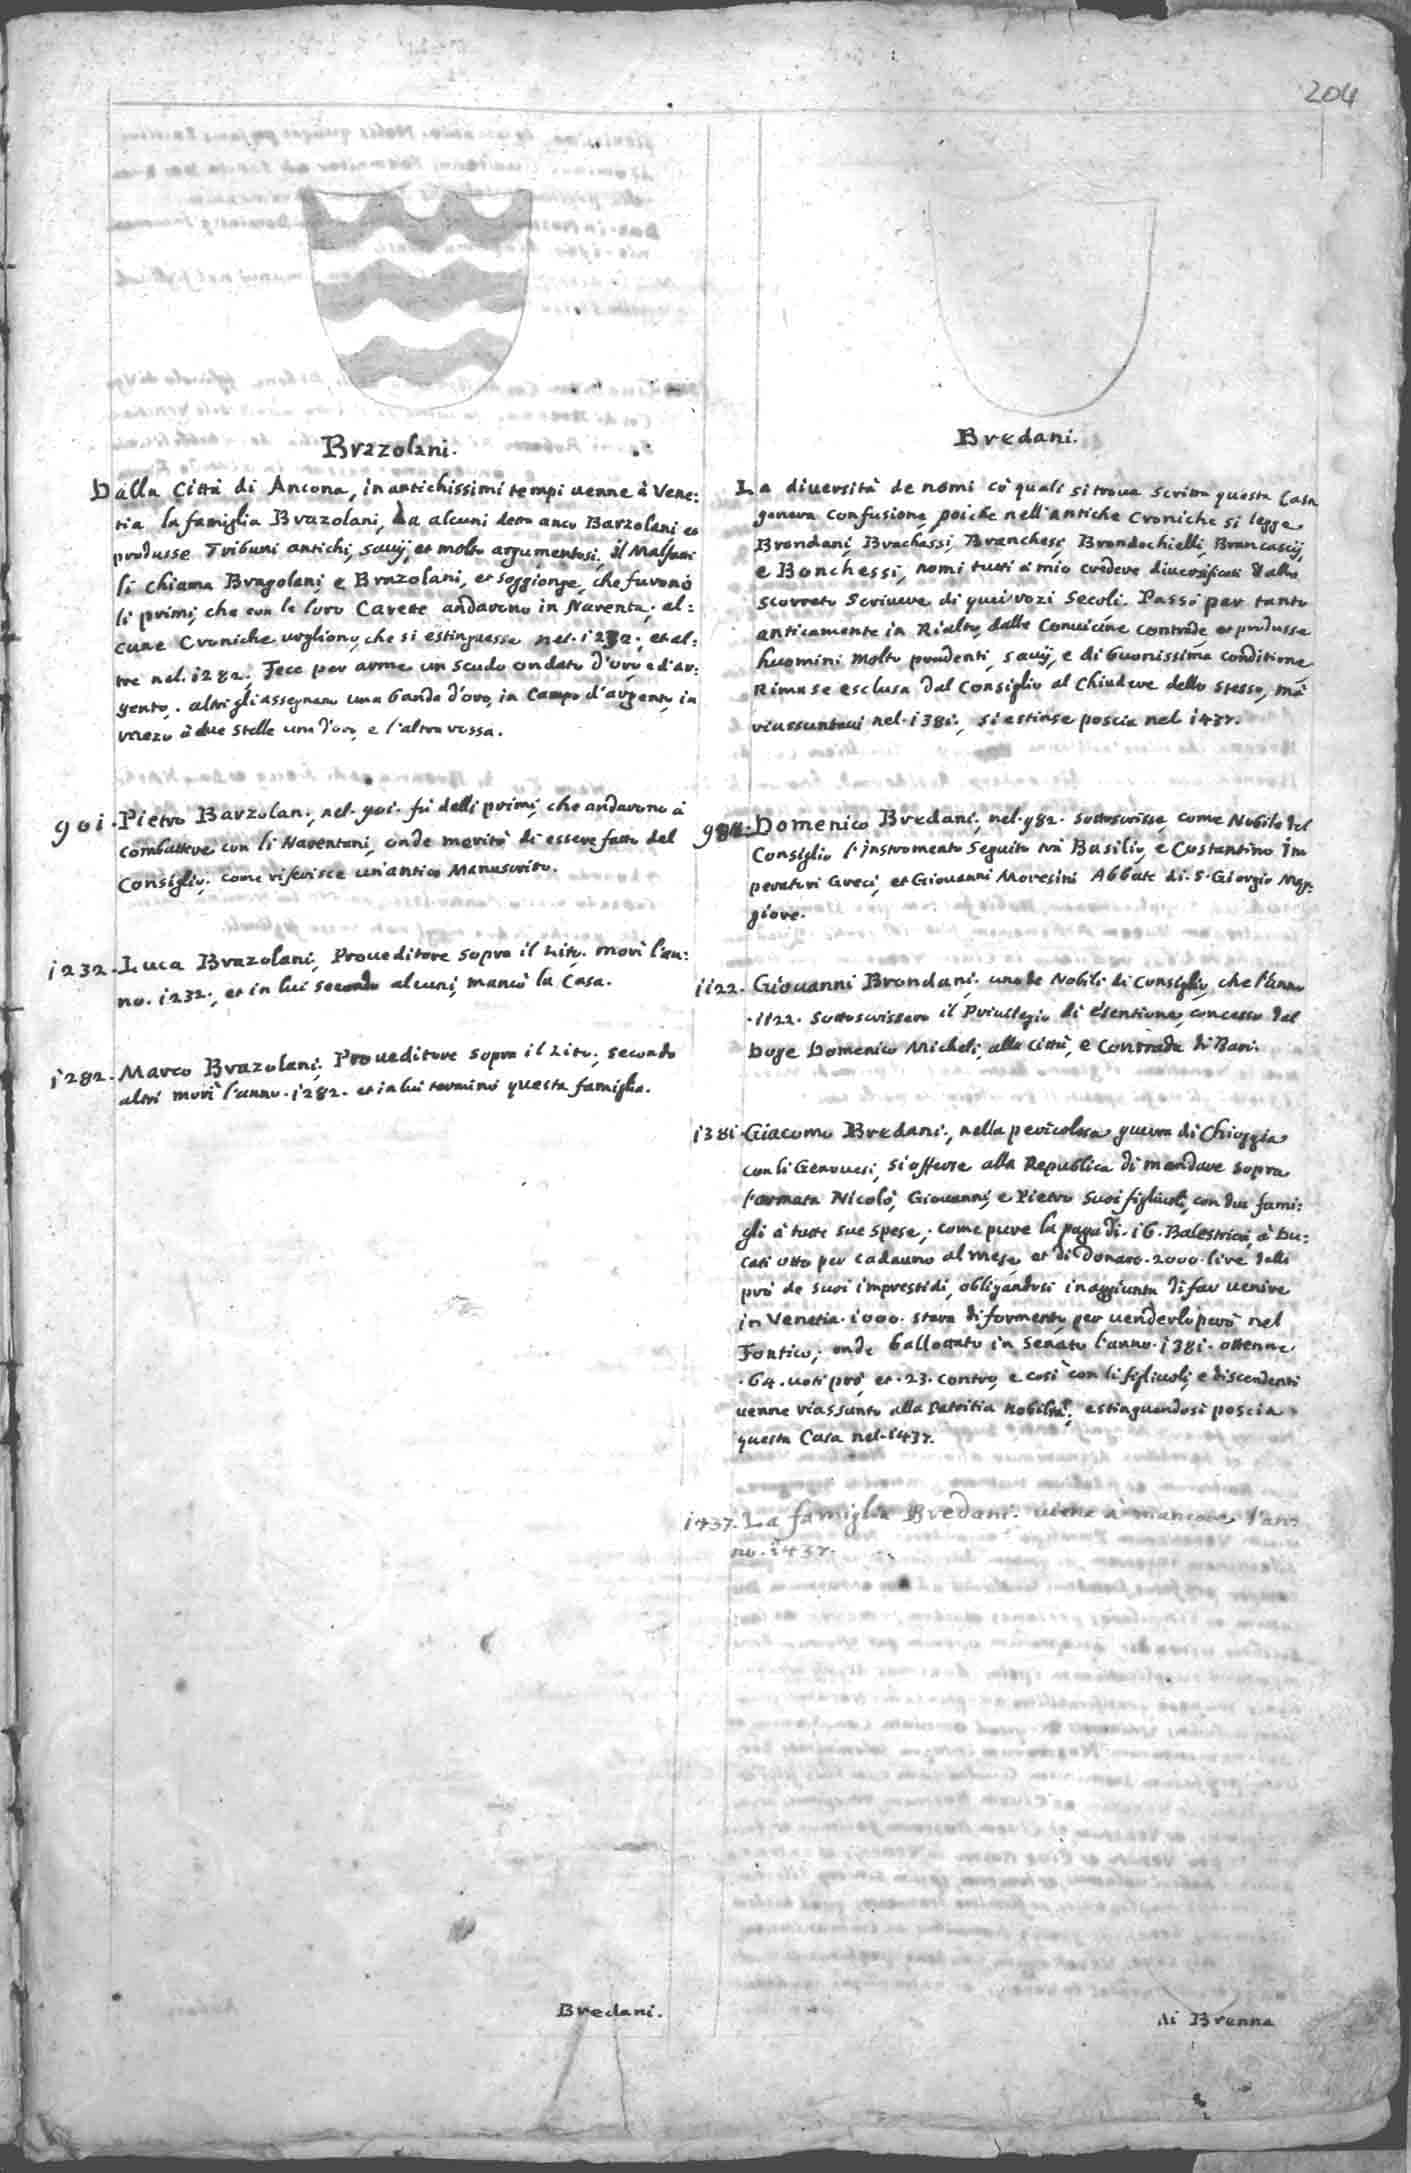 204
Brazolani.
Dalla Città di Ancona, in antichissimi tempi uenne à Vene:
tia la famiglia Brazolani, da alcuni detta anco Barzolani et
produsse Tribuni antichi, sauij, et molto argumentosi, il Malfatti
li chiama Bragolani, e Brazolani, et soggionge, che furono
li primi, che con le loro Carette andarono in Narenta. al:
cune Croniche uogliono, che si estinguesse nel. 1232. et al:
tre nel. 1282. Fece per arme un scudo ondato d'oro, e d'ar:
gento. altri gli assegnano una banda d'oro, in Campo d'argento, in
mezo à due stelle una d'oro, e l'altra rossa.
901. Pietro Barzolan. nel. 901. fù delli primi, che andarono à
combattere con li Narentani, onde meritò di essere fatto del
Consiglio. come riferisce un'antico Manuscrito.
1232. Luca Brazolani, Proueditore sopra il Lito. morì l'an:
no. 1232., et in lui secondo alcuni, mancò la Casa.
1282. Marco Brazolani, Proueditore sopra il Lito, secondo
altri morì l'anno. 1282. et in lui terminò questa famiglia.
Bredani.
Bredani.
La diuersità de nomi co' quali si troua scritta questa Casa
genera confusione, poiche nell'antiche Croniche si legge
Brondani, Brachessi, Branchesi, Brondochielli, Brancascij,
e Bonchessi, nomi tutti à mio credere diuersificati dallo
scorreto scriuere di quei rozi secoli. Passò per tanto
anticamente in Rialto, dalle Conuicine contrade, et produsse
huomini molto prudenti, sauij, e di buonissima conditione
Rimase esclusa dal Consiglio al Chiudere dello stesso, mà
riassuntaui nel. 1381., si estinse poscia nel 1437.
982. Domenico Bredani, nel. 982. sottoscrisse, come Nobile del
Consiglio l'Instromento seguito trà Basilio, e Costantino Im
peratori Greci, et Giouanni Moresini Abbate di. S. Giorgio Mag:
giore.
1122. Giouanni Brondani, uno de Nobili di Consiglio, che l'anno
. 1122. sottoscrissero il Priuilegio di esentione, concesso dal
Doge Domenico Micheli, alla Città, e Contrada di Bari.
1381. Giacomo Bredani, nella pericolosa guerra di Chioggia
con li Genouesi, si offerse alla Republica di mandare sopra
l'armata Nicolò, Giouanni, e Pietro suoi figliuoli, con due fami:
gli à tutte sue spese, come pure la paga di. 16. Balestrieri, à Du:
cati otto per cadauno al mese, et di donare. 2000. lire delli
prò de suoi imprestidi, obligandosi in aggiunta di far uenire
in Venetia. 1000. stara di formento, per uenderlo però nel
Fontico, onde ballottato in Senato l'anno. 1381. ottenne
. 64. uoti prò, et. 23. contro, e così con li figliuoli, e discendenti
uenne riassunto alla Patritia nobiltà, estinguendosi poscia
questa Casa nel. 1437.
1437. La famiglia Bredani. uiene à mancare l'an:
no. 1437.
di Brenna